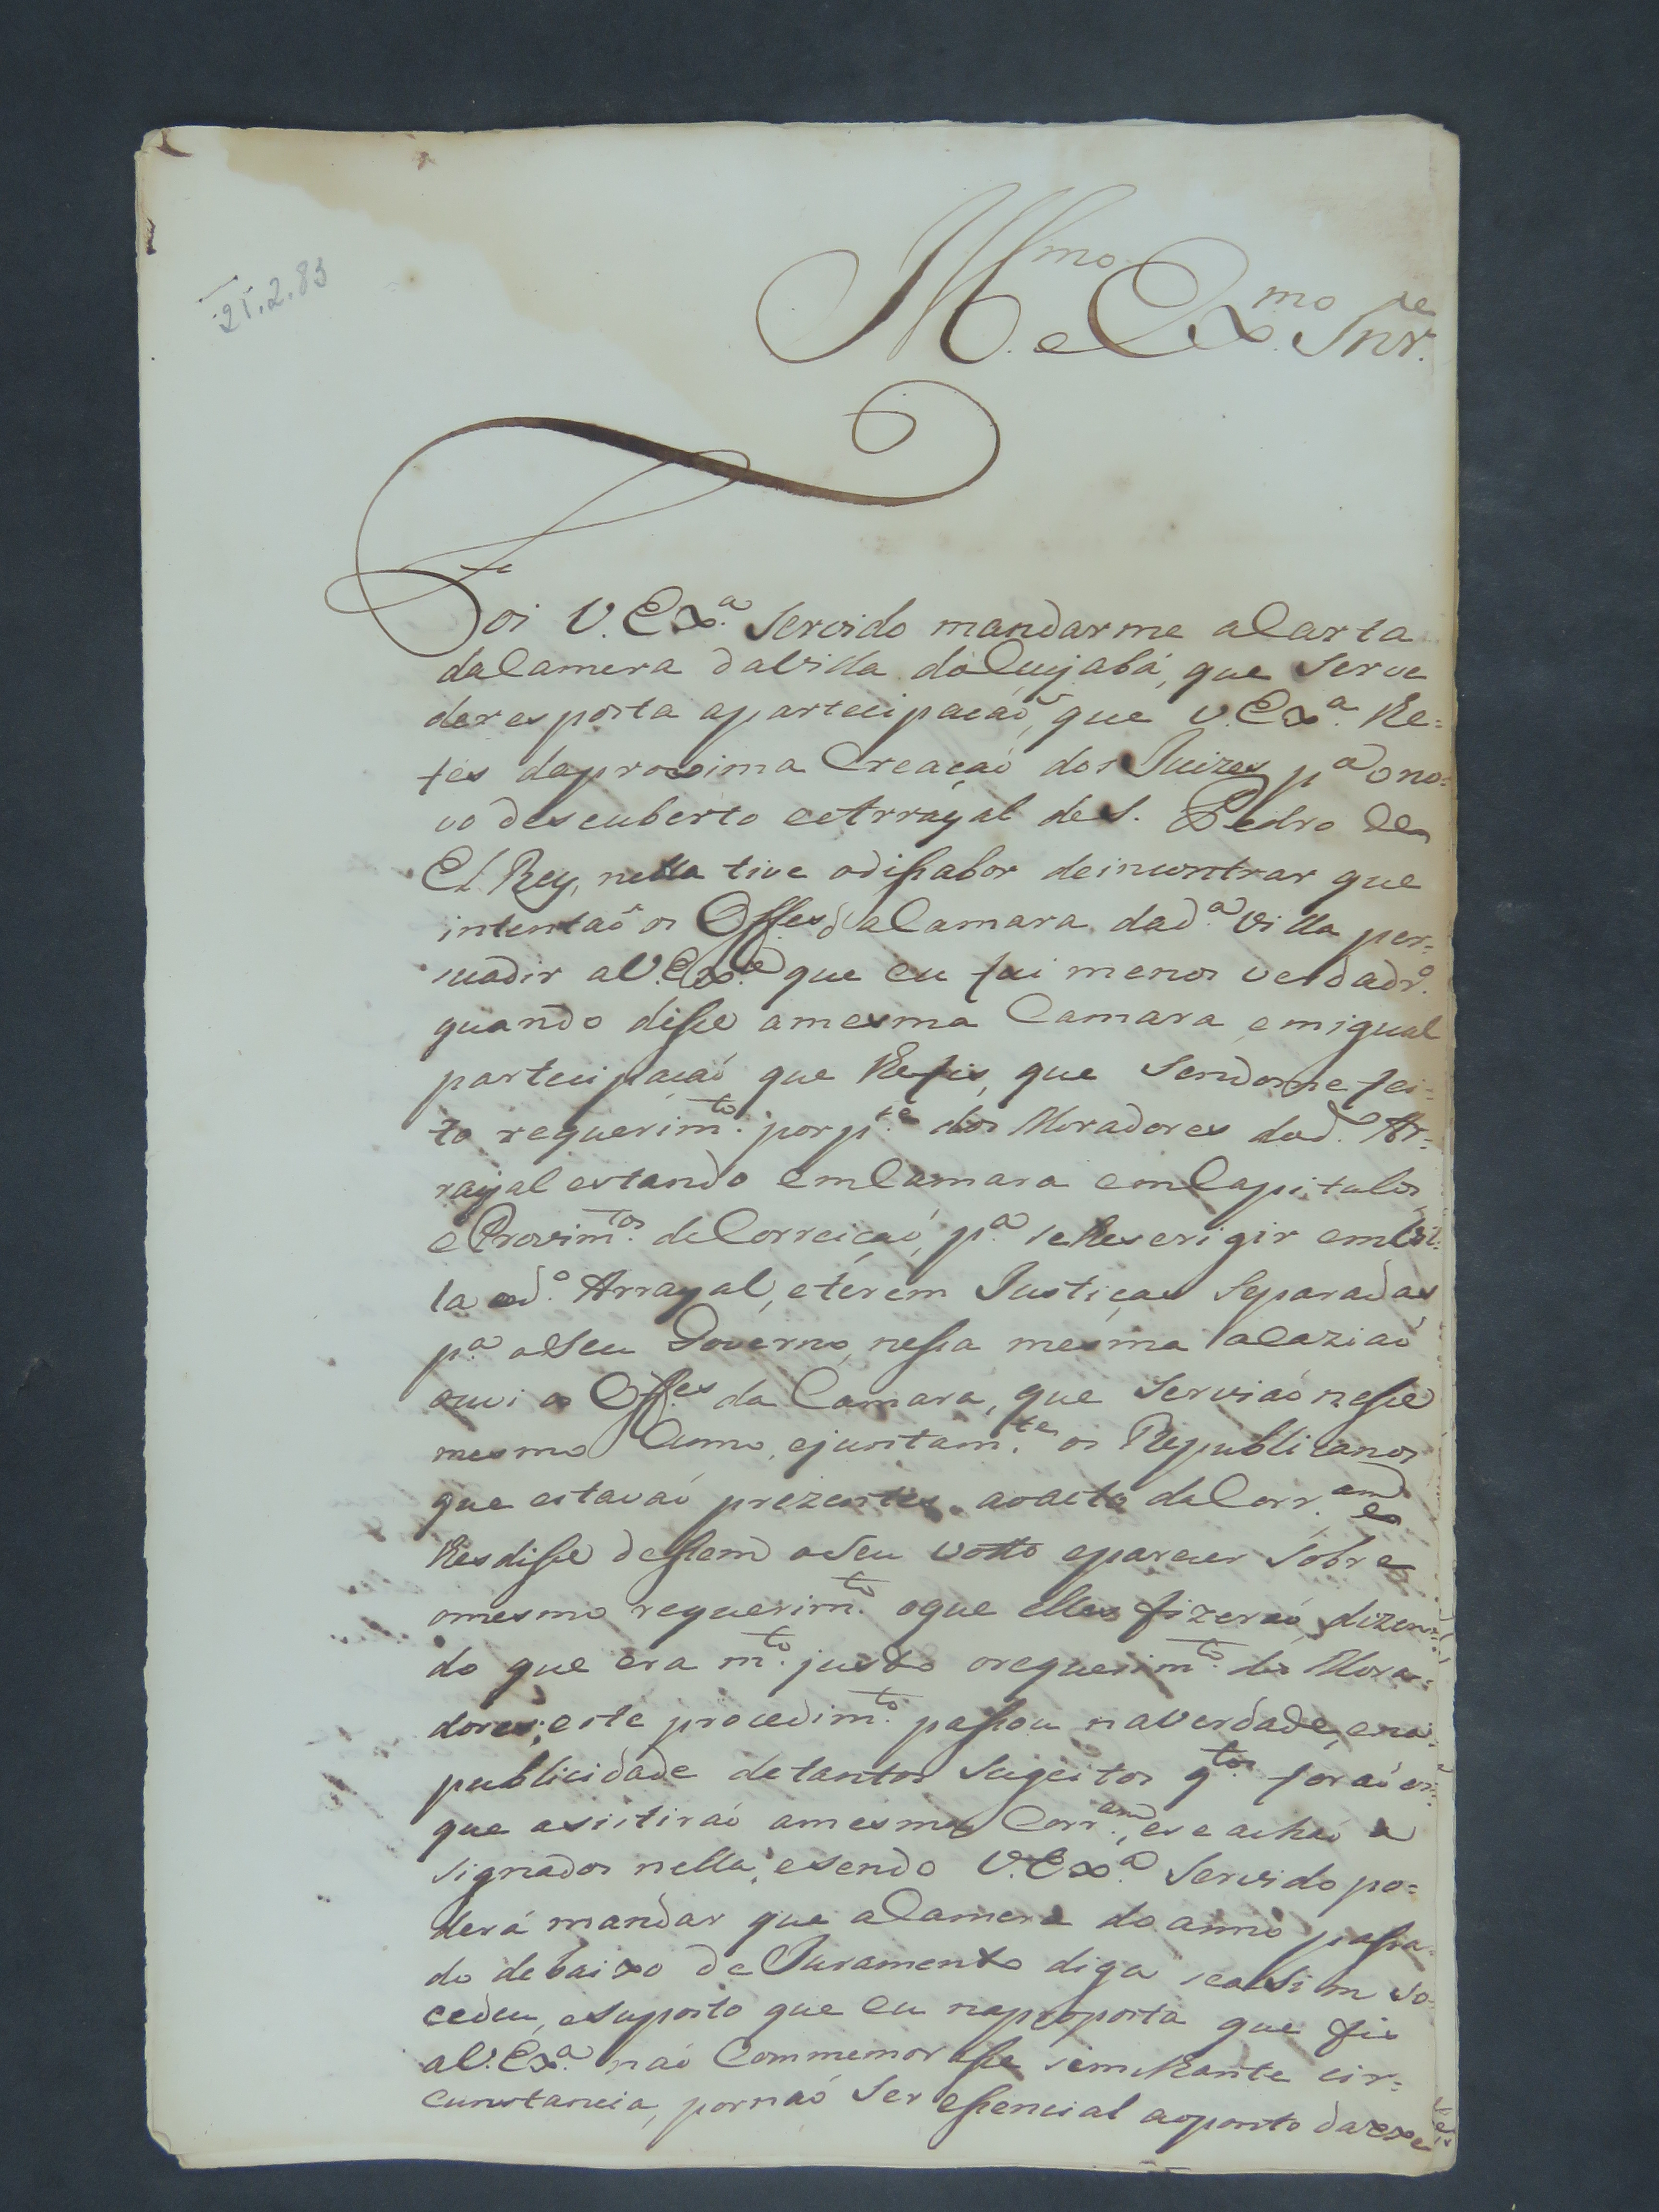 21.2.83
Ill.mo e Ex.mo Snr.
Foi V. Ex.a servido mandarme a Carta
da Camera da Villa do Cuyabá, que serve
de resposta a partecipação, que V. Ex.a lhe
fes da proxima Creação dos Juizes p.a o no=
vo descuberto e Arrayal de S. Pedro de
El Rey, nella tive o dissabor de incontrar que
intentaõ os Off.es da Camara da d.a Villa per=
suadir a V. Ex.a que eu fui menos verdadr.o
quando disse a mesma Camara, em igual
partecipaçaõ que lhe fis, que sendome fei=
to requerim.to por p.te dos Moradores do d.o Ar=
rayal estando em Camara em Capitulos
e Provim.tos de Correiçaõ, p.a se lhes erigir em Vil=
la o d.o Arrayal, e terem Justiças separadas
p.a o seu Governo, nessa mesma ocaziaõ
ouvi os Off.es da Camara, que serviaõ nesse
mesmo Anno, e juntam.te os Republicanos
que estavaõ prezentes ao acto da Corr.am e
lhes disse dessem o seu votto e parecer sobre
o mesmo requerim.to o que elles fizeraõ, dizen=
do que era m.to justo o requerim.to dos Mora=
dores; este procedim.to passou na verdade, e na
publicidade de tantos sugeitos q.tos foraõ os
que asistiraõ a mesma Corr.am, e se achaõ a
signados nella; e sendo V. Ex.a servido po=
derá mandar que a Camera do anno passa=
do debaixo de Juramento diga se assim so=
cedeu, e suposto que eu na proposta que fis
a V. Ex.a naõ Commemorasse semelhante cir=
cunstancia, por naõ ser essencial ao ponto da exe